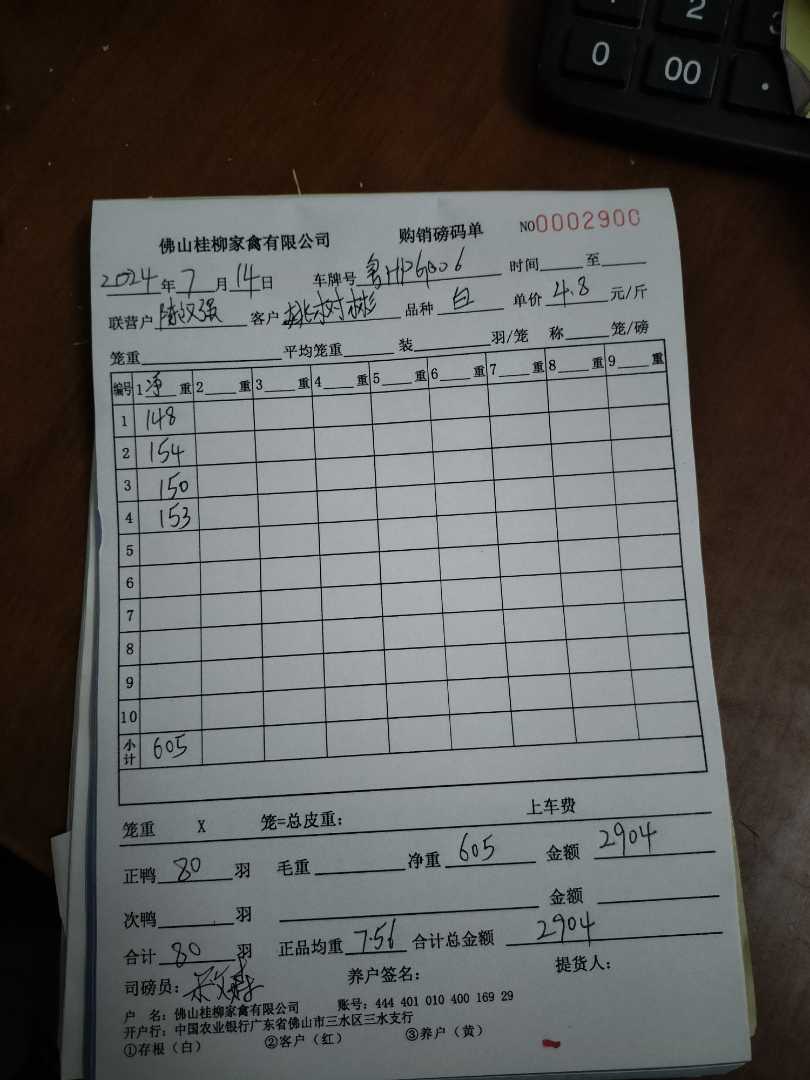 2
0 00 .
佛山桂柳家禽有限公司 购销磅码单 NO 0002900
2024年7月14日 车牌号 鲁HP6B06 时间 至
联营户 陈汉强 客户 树彬 品种 白 单价 4.8 元/斤
笼重 平均笼重 装 羽/笼 称 笼/磅
编号 1净重 2 重 3 重 4 重 5 重 6 重 7 重 8 重 9 重
1 148
2 154
3 150
4 153
5
6
7
8
9
10
小计 605
笼重 X 笼=总皮重： 上车费
正鸭 80 羽 毛重 净重 605 金额 2904
次鸭 羽 金额
合计 80 羽 正品均重 7.56 合计总金额 2904
司磅员： 养户签名： 提货人：
户 名：佛山桂柳家禽有限公司 账号：444 401 010 400 169 29
开户行：中国农业银行广东省佛山市三水区三水支行
①存根（白） ②客户（红） ③养户（黄）